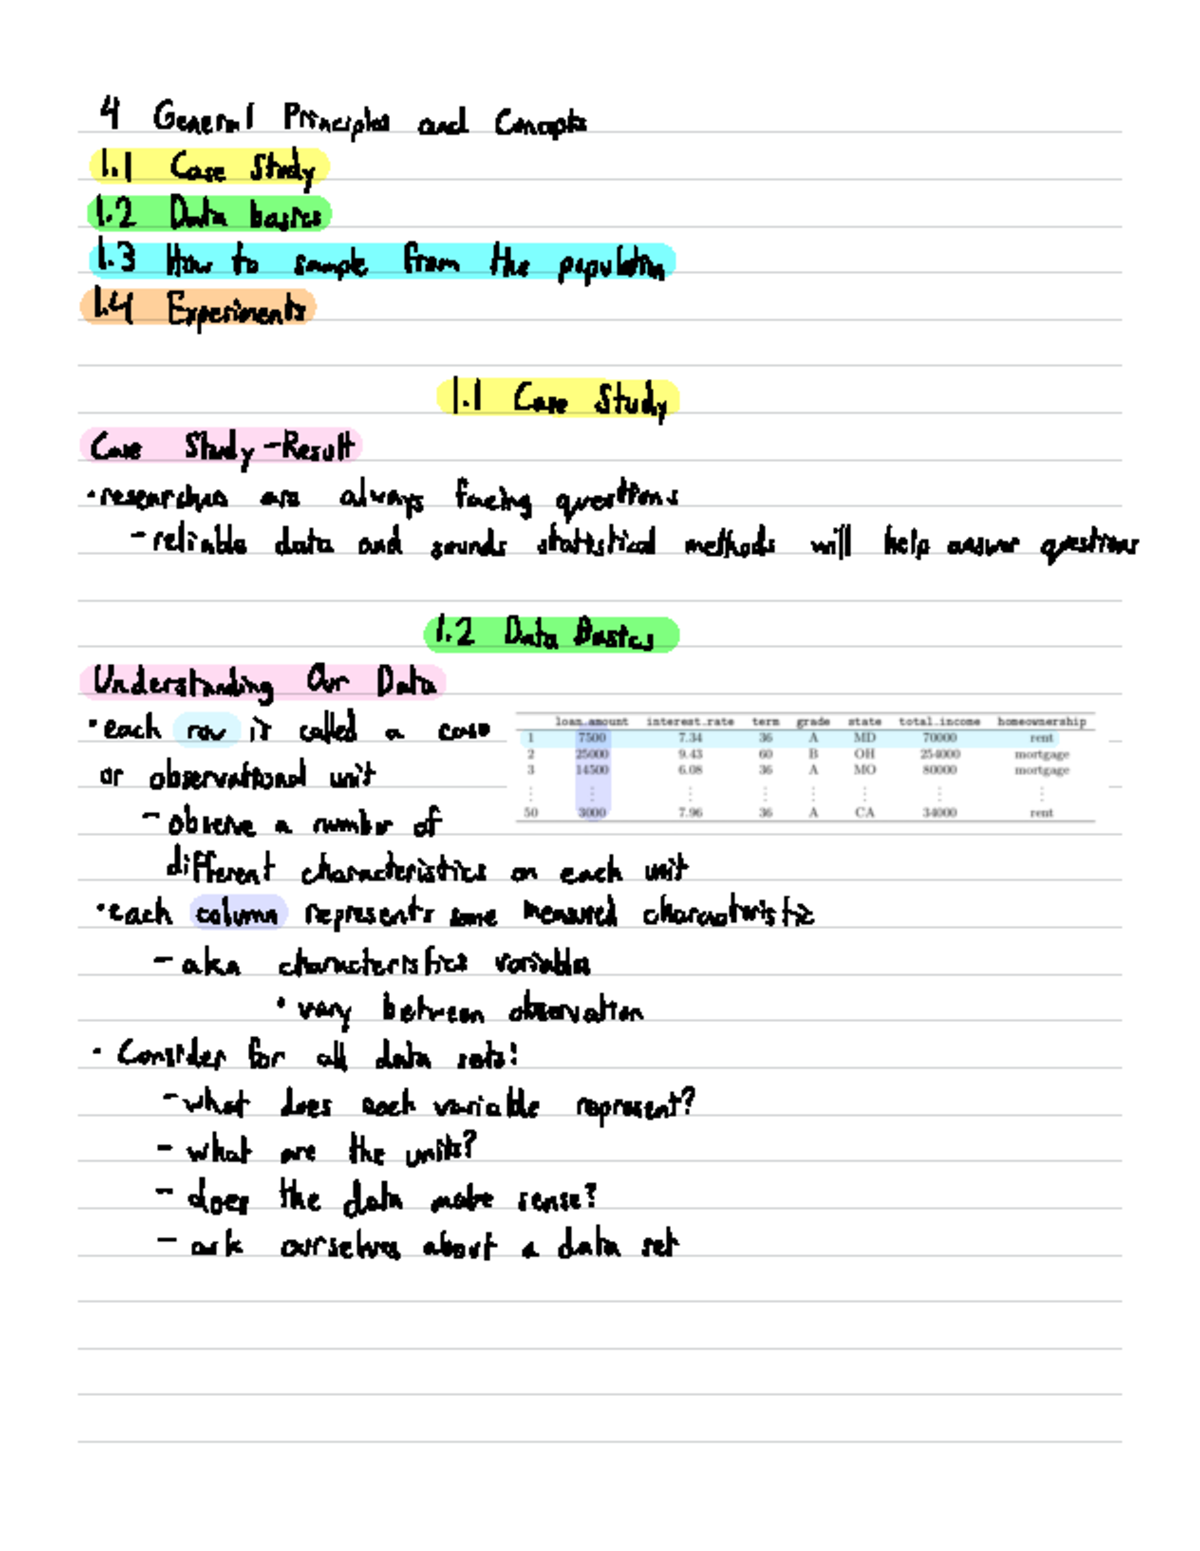 4 General Principles and Concepts
1.1 Case Study
1.2 Data basics
1.3 How to sample from the population
1.4 Experiments
1.1 Case Study
Case Study - Result
• researches are always facing questions
- reliable data and sounds statistical methods will help answer questions
1.2 Data Basics
Understanding Our Data
• each row is called a case
or observational unit
- observe a number of
different characteristics on each unit
loan_amount interest_rate term grade state total_income homeownership
1 7500 7.34 36 A MD 70000 rent
2 25000 9.43 60 B OH 254000 mortgage
3 14500 6.08 36 A MO 80000 mortgage
⋮ ⋮ ⋮ ⋮ ⋮ ⋮ ⋮ ⋮
50 3000 7.96 36 A CA 34000 rent
• each column represents some measured characteristic
- aka characteristics variables
• vary between observation
• Consider for all data sets:
- what does each variable represent?
- what are the units?
- does the data make sense?
- ask ourselves about a data set